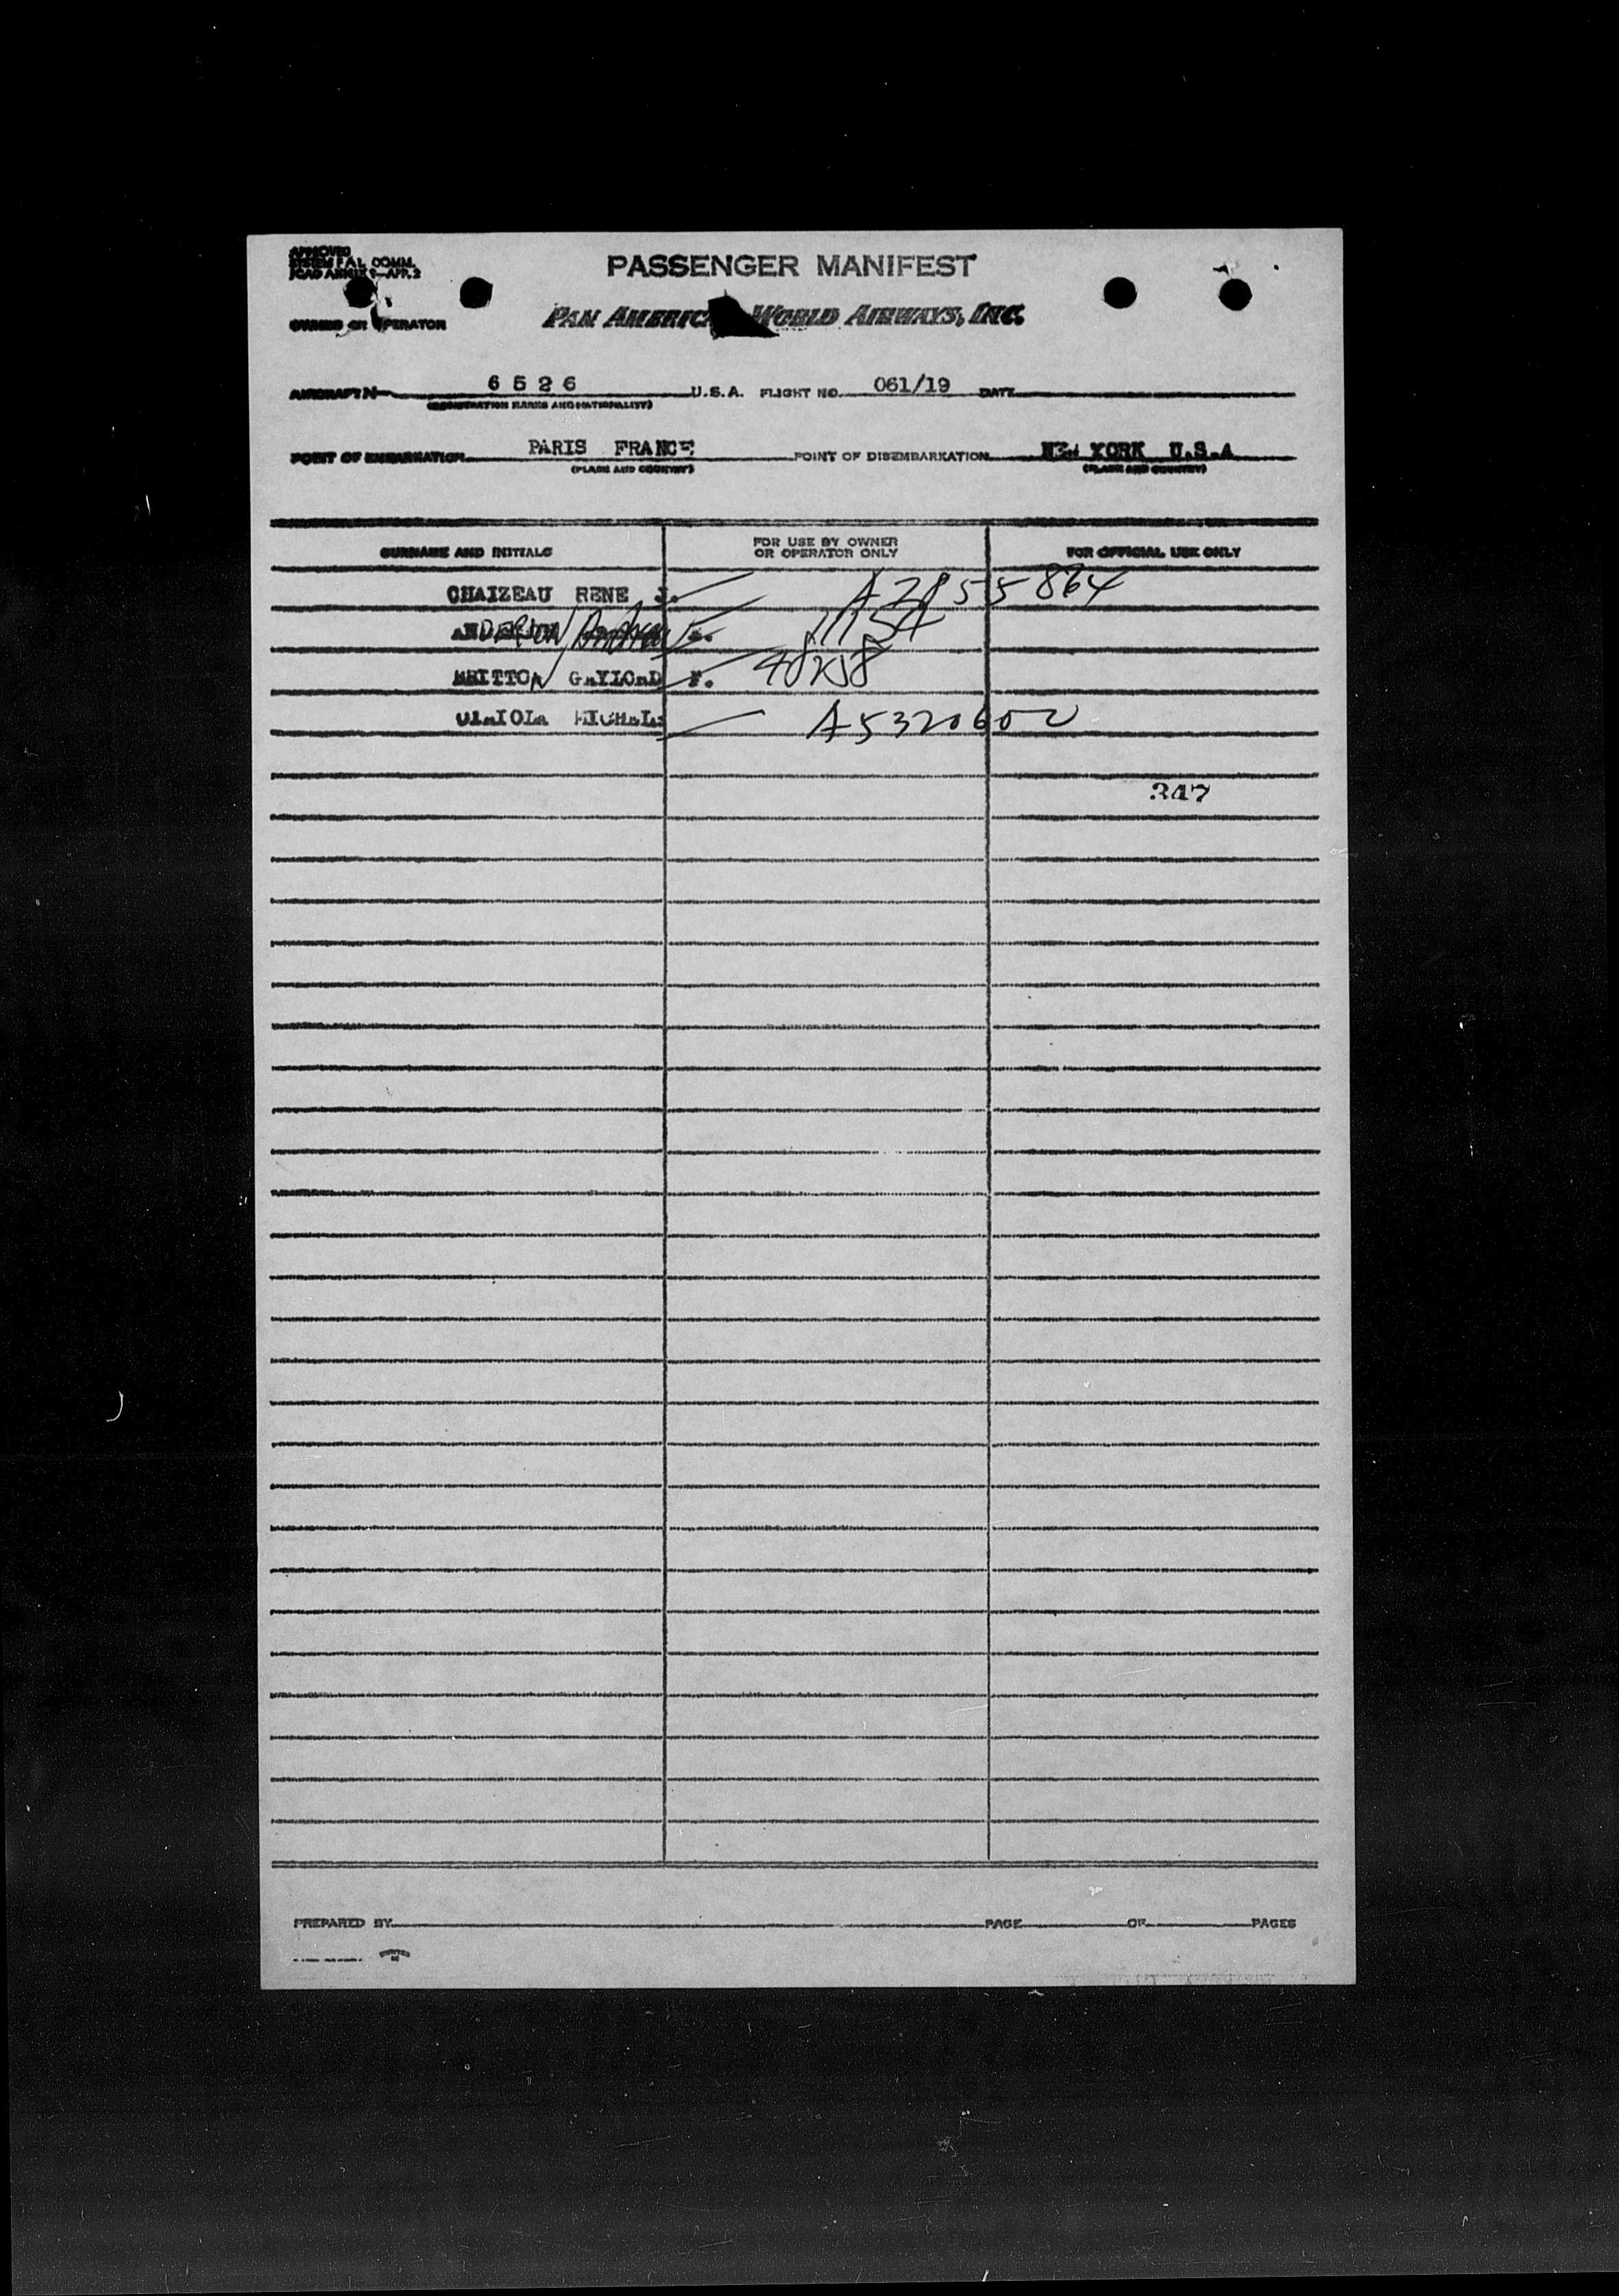 APPROVED
SYSTEM F.A.L. COMM.
ICAO ANNEX 9—APP. 2
PASSENGER MANIFEST
OWNER OR OPERATOR PAN AMERICAN WORLD AIRWAYS, INC.
AIRCRAFT N 6526 U.S.A. FLIGHT NO. 061/19 DATE
(REGISTRATION MARKS AND NATIONALITY)
POINT OF EMBARKATION PARIS FRANCE POINT OF DISEMBARKATION NEW YORK U.S.A
(PLACE AND COUNTRY) (PLACE AND COUNTRY)
SURNAME AND INITIALS FOR USE BY OWNER OR OPERATOR ONLY FOR OFFICIAL USE ONLY
CHAIZEAU RENE J. A
ANDERSON
BRITTON GAYLORD F.
A5320600
347
PREPARED BY PAGE OF PAGES